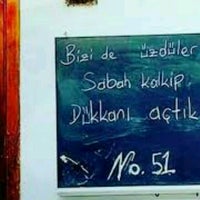 Bizi de üzdüler
Sabah kalkıp,
Dükkanı açtık
No. 51